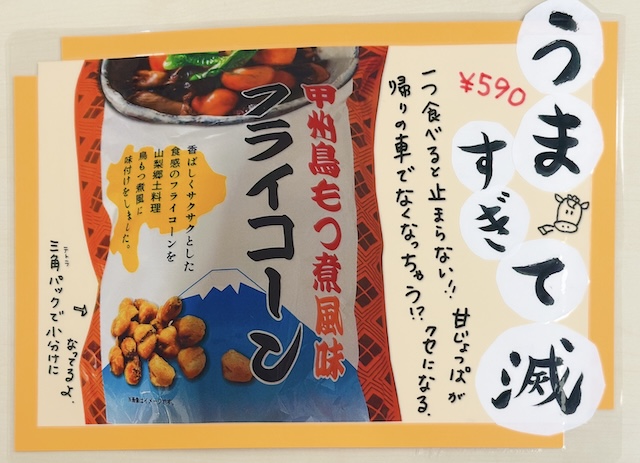 うますぎて滅
¥590
一つ食べると止まらない!!甘じょっぱが
帰りの車でなくなっちゃう!?クセになる.
甲州鳥もつ煮風味
フライコーン
香ばしくサクサクとした
食感のフライコーンを
山梨郷土料理
鳥もつ煮風に
味付けをしました。
※画像はイメージです。
テトラ
三角パックで小分けに
なってるよ.